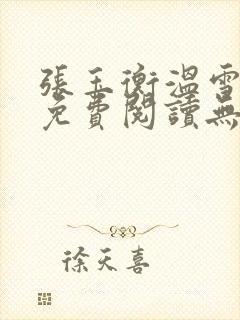 張玉衡溫雪
免費閱讀無
徐天喜